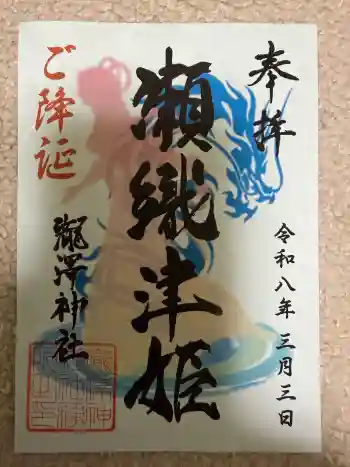 奉拝
令和八年三月三日
瀬織津姫
ご降誕
瀧澤神社